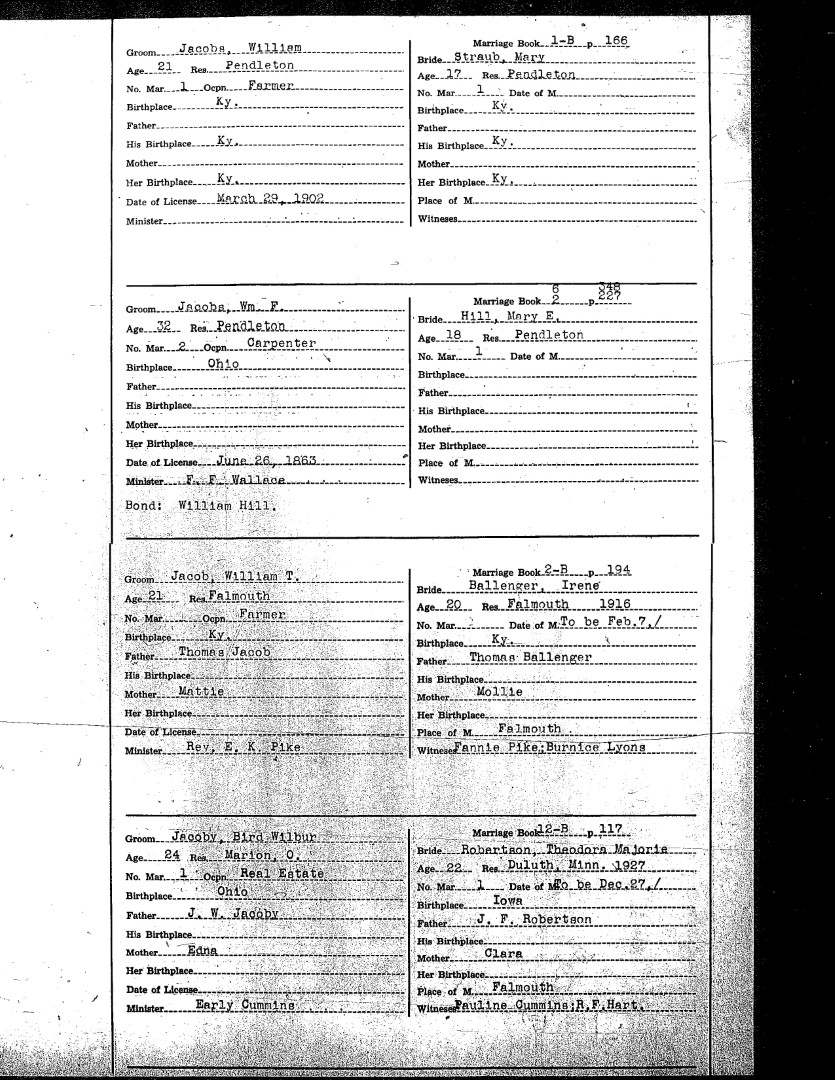 Groom Jacobs, William
Age 21 Res. Pendleton
No. Mar. 1 Ocpn. Farmer
Birthplace Ky.
Father
His Birthplace Ky.
Mother
Her Birthplace Ky.
Date of License March 29, 1902
Minister
Marriage Book 1-B p 166
Bride Straub, Mary
Age 17 Res. Pendleton
No. Mar. 1 Date of M.
Birthplace Ky.
Father
His Birthplace Ky.
Mother
Her Birthplace Ky.
Place of M.
Witneses
Groom Jacobs, Wm. F.
Age 32 Res. Pendleton
No. Mar. 2 Ocpn. Carpenter
Birthplace Ohio
Father
His Birthplace
Mother
Her Birthplace
Date of License June 26, 1863
Minister F. F. Wallace
Bond: William Hill.
6 348
Marriage Book 2 p 227
Bride Hill, Mary E.
Age 18 Res. Pendleton
No. Mar. 1 Date of M.
Birthplace
Father
His Birthplace
Mother
Her Birthplace
Place of M.
Witneses
Groom Jacob, William T.
Age 21 Res. Falmouth
No. Mar. Ocpn. Farmer
Birthplace Ky.
Father Thomas Jacob
His Birthplace
Mother Mattie
Her Birthplace
Date of License
Minister Rev. E. K. Pike
Marriage Book 2-B p 194
Bride Ballenger, Irene
Age 20 Res. Falmouth 1916
No. Mar. Date of M. To be Feb.7,/
Birthplace Ky.
Father Thomas Ballenger
His Birthplace
Mother Mollie
Her Birthplace
Place of M. Falmouth
Witneses Fannie Pike;Burnice Lyons
Groom Jacoby, Bird Wilbur
Age 24 Res. Marion, O.
No. Mar. 1 Ocpn. Real Estate
Birthplace Ohio
Father J. W. Jacoby
His Birthplace
Mother Edna
Her Birthplace
Date of License
Minister Early Cummins
Marriage Book 12-B p 117
Bride Robertson, Theodora Majorie
Age 22 Res. Duluth, Minn. 1927
No. Mar. 1 Date of M. To be Dec.27,/
Birthplace Iowa
Father J. F. Robertson
His Birthplace
Mother Clara
Her Birthplace
Place of M. Falmouth
Witneses Pauline Cummins;R.F.Hart.